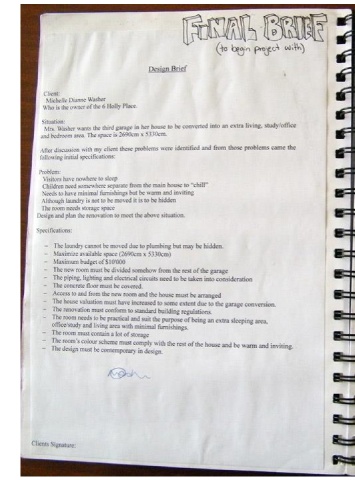 FINAL BRIEF
(to begin project with)
Design Brief
Client:
Michelle Dianne Washer
Who is the owner of the 6 Holly Place.
Situation:
Mrs. Washer wants the third garage in her house to be converted into an extra living, study/office
and bedroom area. The space is 2690cm x 5330cm.
After discussion with my client these problems were identified and from those problems came the
following initial specifications:
Problem:
Visitors have nowhere to sleep
Children need somewhere separate from the main house to "chill"
Needs to have minimal furnishings but be warm and inviting
Although laundry is not to be moved it is to be hidden
The room needs storage space
Design and plan the renovation to meet the above situation.
Specifications:
- The laundry cannot be moved due to plumbing but may be hidden.
- Maximize available space (2690cm x 5330cm)
- Maximum budget of $10'000
- The new room must be divided somehow from the rest of the garage
- The piping, lighting and electrical circuits need to be taken into consideration
- The concrete floor must be covered.
- Access to and from the new room and the house must be arranged
- The house valuation must have increased to some extent due to the garage conversion.
- The renovation must conform to standard building regulations.
- The room needs to be practical and suit the purpose of being an extra sleeping area,
office/study and living area with minimal furnishings.
- The room must contain a lot of storage
- The room's colour scheme must comply with the rest of the house and be warm and inviting.
- The design must be contemporary in design.
Clients Signature: